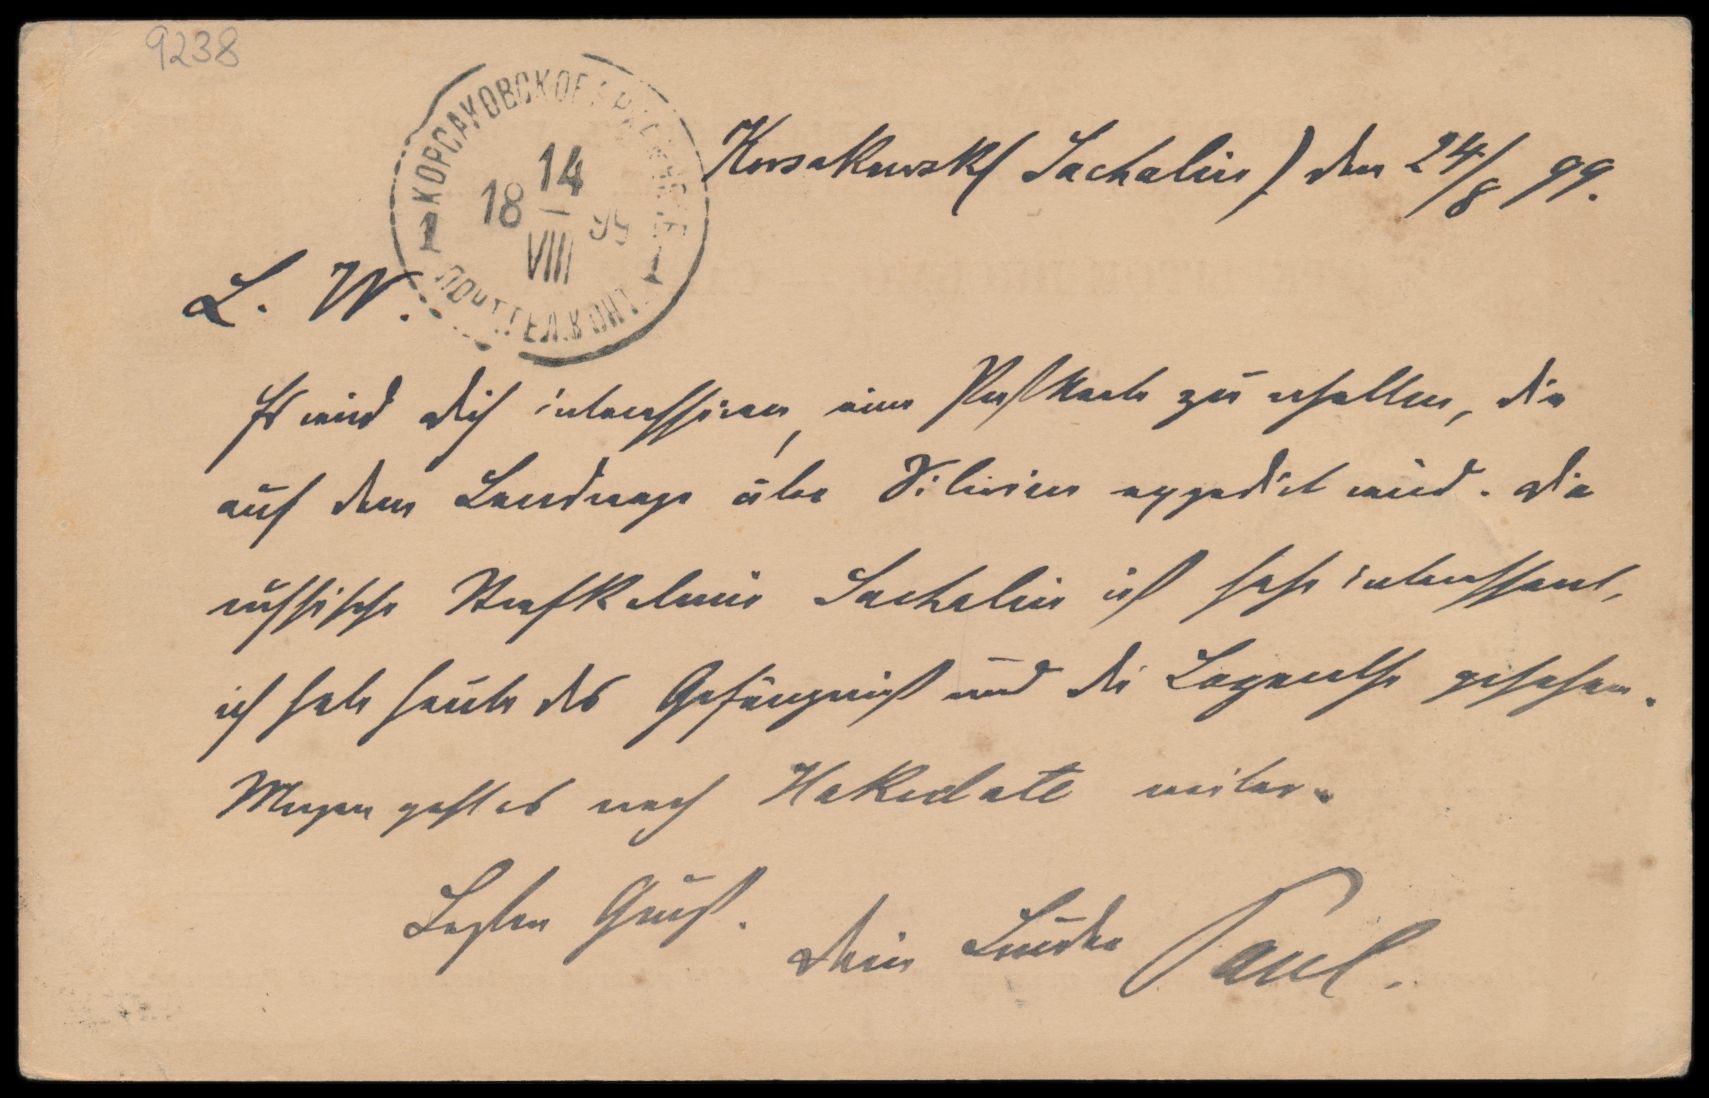 9238
КОРСАКОВСКОЕ
1 1
18 14 VIII 99
ПОЧТ. ТЕЛ. КОНТ.
Korsakowsk (Sachalin) den 24/8 99.
L. W.
Es wird Dich interessiren, eine Postkarte zu erhalten, die
auf dem Landwege über Sibirien expedirt wird. Die
russische Strafkolonie Sachalin ist sehr interessant,
ich habe heute das Gefängniß und die Lazarethe gesehen.
Morgen geht es nach Hakodate weiter.
Besten Gruß.
Dein Bruder Paul.